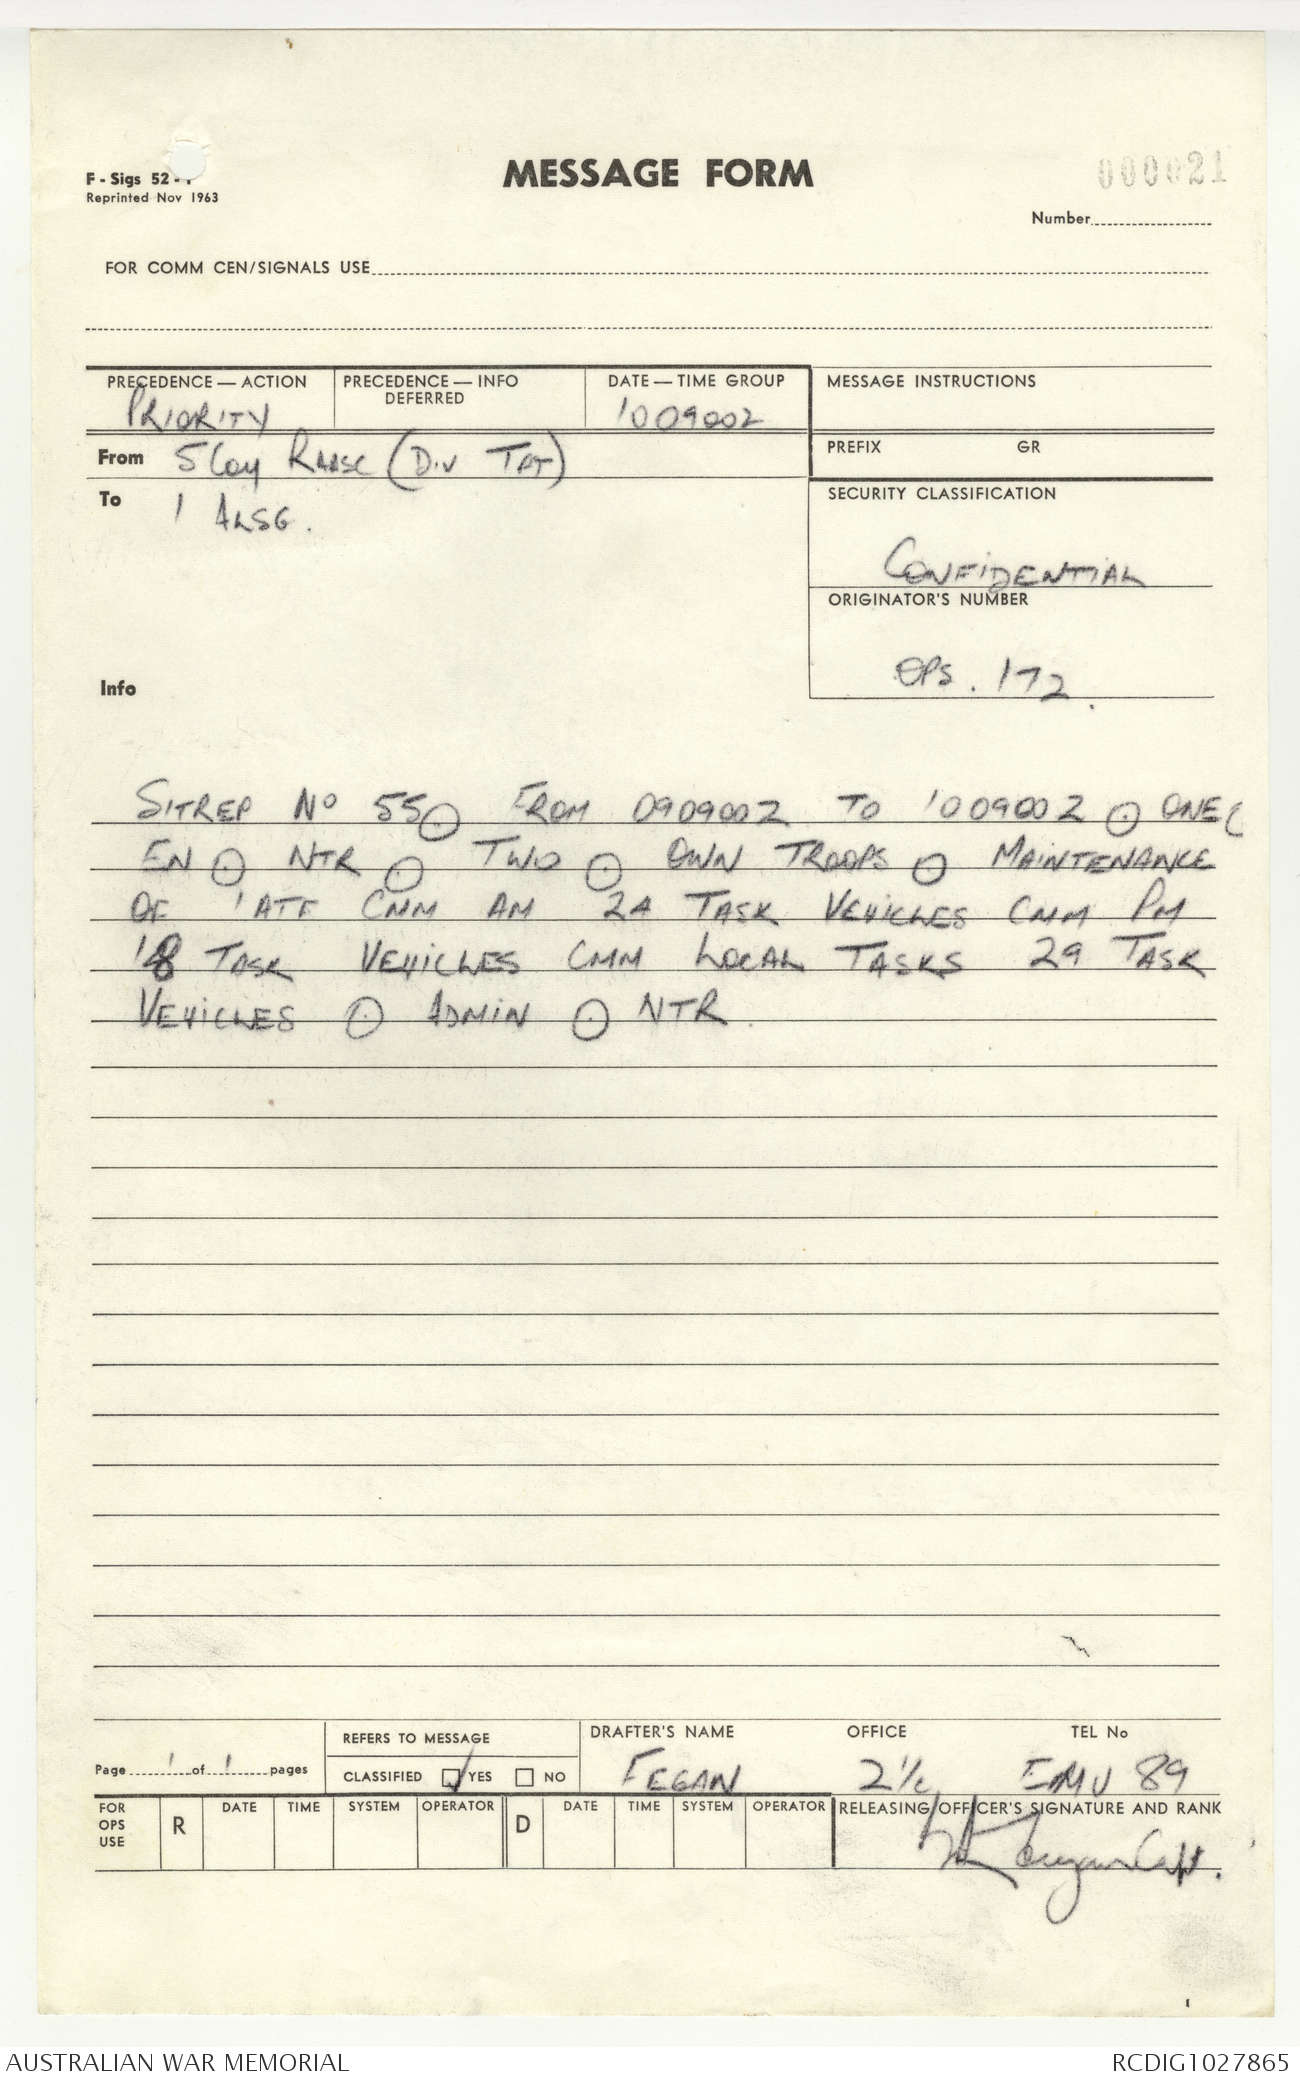 F - Sigs 52 - 1
Reprinted Nov 1963
MESSAGE FORM
000021
Number
FOR COMM CEN/SIGNALS USE
PRECEDENCE — ACTION
PRIORITY
PRECEDENCE — INFO
DEFERRED
DATE — TIME GROUP
100900Z
MESSAGE INSTRUCTIONS
From 5 Coy RAASC (Div Tpt)
PREFIX GR
To 1 ALSG.
SECURITY CLASSIFICATION
CONFIDENTIAL
ORIGINATOR'S NUMBER
OPS. 172.
Info
SITREP No 55 ⊙ FROM 090900Z TO 100900Z ⊙ ONE (
EN ⊙ NTR ⊙ TWO ⊙ OWN TROOPS ⊙ MAINTENANCE
OF 1ATF CMM AM 24 TASK VEHICLES CMM PM
18 TASK VEHICLES CMM LOCAL TASKS 29 TASK
VEHICLES ⊙ ADMIN ⊙ NTR.
Page 1 of 1 pages
REFERS TO MESSAGE
CLASSIFIED YES NO
DRAFTER'S NAME
FEGAN
OFFICE
2I/C
TEL No
EMU 89
FOR
OPS
USE
R
DATE TIME SYSTEM OPERATOR
D
DATE TIME SYSTEM OPERATOR
RELEASING OFFICER'S SIGNATURE AND RANK
Capt.
AUSTRALIAN WAR MEMORIAL
RCDIG1027865